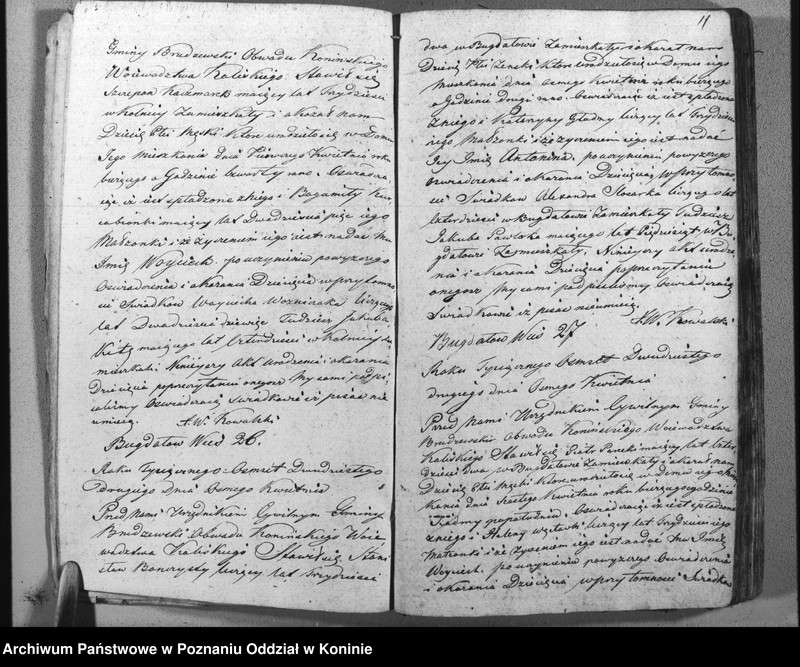 Gminy Brudzewski Obwodu Konińskiego
Woiewództwa Kaliskiego Stawił się
Szczepan Kaczmarek maiący lat Trydzieści
w Kolnicy Zamieszkały i okazał nam
Dziecię Płci Męski Które urodziło się w Domu
Jego Mieszkania dnia Pierwszego Kwietnia roku
bieżącego o Godzinie Czwarty rano. Oswiadcza
iąc iż iest spłodzone z niego i
maiący lat Dwadzieścia jego
Małżonki i iż życzeniem iego iest nadać mu
Jmię Woyciech. po uczynieniu powyższego
Oswiadczenia i okazania Dziecięcia w przytomno
ści Swiadków Woyciecha Wozniaka liczącego
lat Dwadzieścia dziewięc Tudziesz Jakuba
maiącego lat Czterdzieści w Kolnicy Za
mieszkali. Ninieyszy Akt Urodzenia i okazania
Dziecięcia po przeczytaniu onegoż My sami podpi
saliśmy Oswiadczaią Swiadkowie iż pisać nie
umieią. Kowalski
Bugdałow Wieś 26.
Roku Tysiącznego Osmset Dwudziestego
Drugiego Dnia Osmego Kwietnia
Przed Nami Urzędnikiem Cywilnym Gminy
Brudzewski Obwodu Konińskiego Woie
wództwa Kaliskiego Stawił się Stani
sław liczący lat Trzydzieści
11
dwa w Bugdałowie Zamieszkały i okazał nam
Dziecię Płci Żeński Które urodziło się w Domu iego
Mieszkania dnia Osmego Kwietnia roku bieżącego
o Godzinie drugi rano. Oswiadczaiąc iż iest spłodzone
z niego i Katarzyny liczący lat Trydzieści
iego Małżonki i iż życzeniem iego iest nadać
Jey Jmię Antonina. po uczynieniu powyższego
Oswiadczenia i okazania Dziecięcia w przytomno
ści Swiadków Alexandra liczącego lat
Czterdzieści w Bugdałowie Zamieszkały Tudziesz
Jakuba Pawlaka maiącego lat Pięćdziesiąt w Bu
gdałowie Zamieszkały. Ninieyszy Akt Urodze
nia i okazania Dziecięcia po przeczytaniu
onegoż My sami podpisaliśmy Oswiadczaią
Swiadkowie iż pisać nieumieią.
Kowalski
Bugdałow Wieś 27
Roku Tysiącznego Osmset Dwudziestego
drugiego dnia Osmego Kwietnia
Przed Nami Urzędnikiem Cywilnym Gminy
Brudzewski Obwodu Konińskiego Woiewództwa
Kaliskiego Stawił się Piotr maiący lat Czter
dzieści dwa w Bugdałowie Zamieszkały i okazał nam
Dziecię Płci Męski Które urodziło się w Domu iego Miesz
kania dnia Szostego Kwietnia roku bieżącego o godzinie
popołudniu. Oswiadczaiąc iż iest spłodzone
z niego i Heleny liczący lat Trydzieści iego
Małżonki i iż życzeniem iego iest nadać mu Jmię
Woyciech. po uczynieniu powyższego Oswiadczenia
i okazania Dziecięcia w przytomności Swiadków
Archiwum Państwowe w Poznaniu Oddział w Koninie